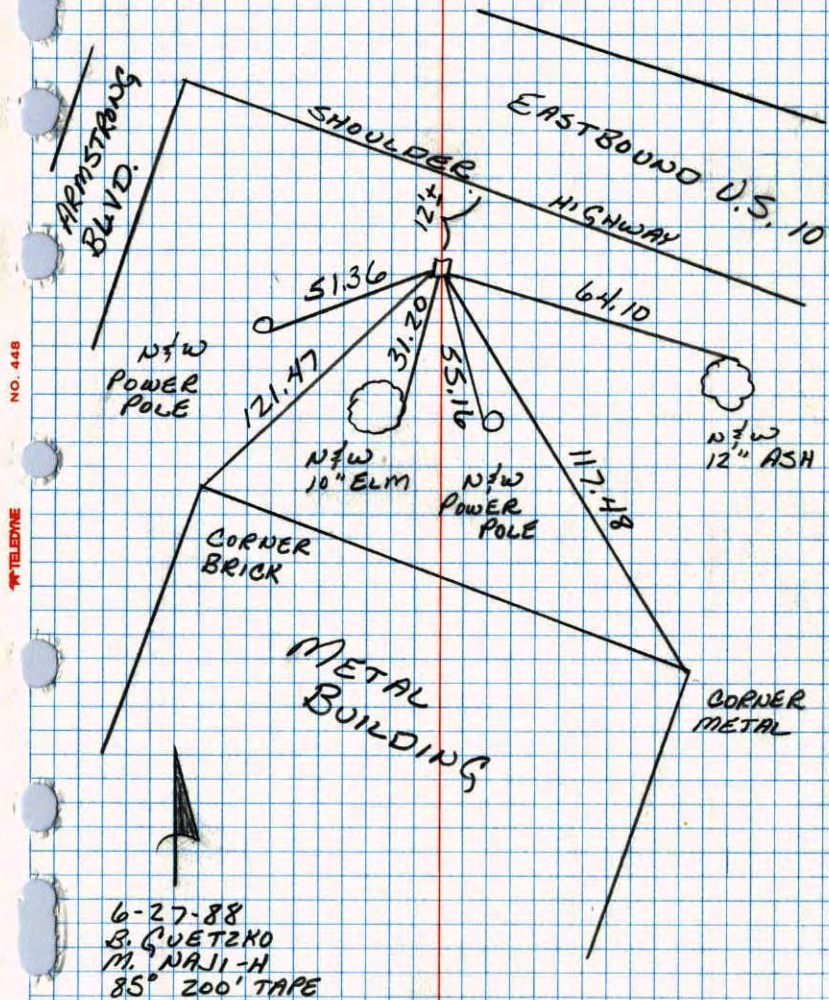 ARMSTRONG
BLVD.
SHOULDER
EASTBOUND U.S. 10
HIGHWAY
12'±
51.36
121.47
31.20
55.16
64.10
117.48
N&W
POWER
POLE
N&W
10" ELM
N&W
POWER
POLE
N&W
12" ASH
CORNER
BRICK
METAL
BUILDING
CORNER
METAL
NO. 448
TELEDYNE
6-27-88
B. GUETZKO
M. NAJI-H
85° 200' TAPE